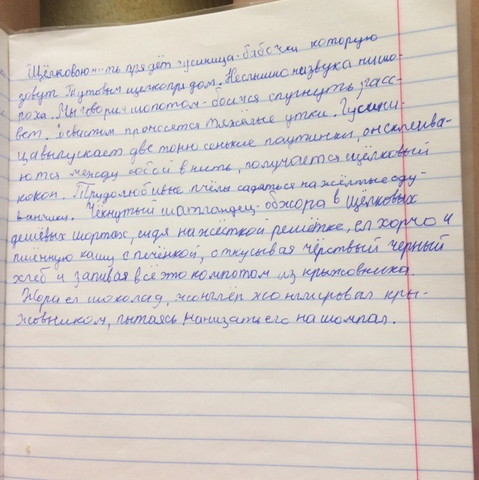 Щёлковою нить прядёт гусиница-бабочки которую
зовут Тутовым щелкопрядом. Неслышно ни звука ни шо-
роха. Мы говорим шопотом-боимся спугнуть расс-
вет. Со свистом пронсется тяжёлые утки. Гусини-
ца выпускает две тонюсенькие паутинки, он склеива-
ются между собой в нить, получается щёлковый
кокон. Трудолюбивые пчёлы садяться на жёлтые оду-
ванчики. Чёкнутый шатландец-обжора в щёлковых
дешёвых шортах, сидя на жёсткой решётке, ел харчо и
пшённую кашу с печёнкой, откусывая чёрствый черный
хлеб и запивая всё это компотом из крыжовника.
Жора ел шоколад, жонглёр жонглировал кры-
жовником, пытаясь нанизать его на шомпол.